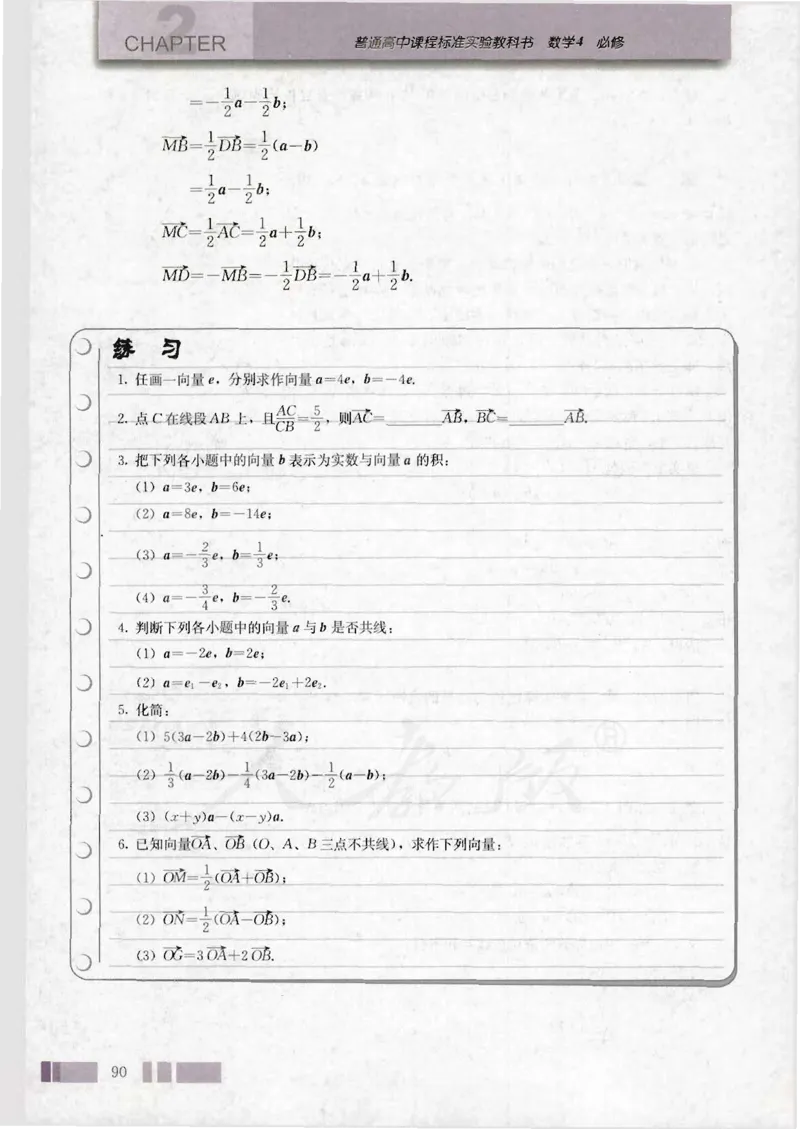 2
CHAPTER
普通高中课程标准实验教科书 数学4 必修
=-1/2 a-1/2 b;
MB=1/2 DB=1/2 (a-b)
=1/2 a-1/2 b;
MC=1/2 AC=1/2 a+1/2 b;
MD=-MB=-1/2 DB=-1/2 a+1/2 b.
练 习
1. 任画一向量 e,分别求作向量 a=4e,b=-4e.
2. 点 C 在线段 AB 上,且AC/CB=5/2,则AC=______AB,BC=______AB.
3. 把下列各小题中的向量 b 表示为实数与向量 a 的积:
(1) a=3e,b=6e;
(2) a=8e,b=-14e;
(3) a=-2/3 e,b=1/3 e;
(4) a=-3/4 e,b=-2/3 e.
4. 判断下列各小题中的向量 a 与 b 是否共线:
(1) a=-2e,b=2e;
(2) a=e₁-e₂,b=-2e₁+2e₂.
5. 化简:
(1) 5(3a-2b)+4(2b-3a);
(2) 1/3 (a-2b)-1/4 (3a-2b)-1/2 (a-b);
(3) (x+y)a-(x-y)a.
6. 已知向量OA、OB (O、A、B 三点不共线),求作下列向量:
(1) OM=1/2 (OA+OB);
(2) ON=1/2 (OA-OB);
(3) OG=3 OA+2 OB.
90